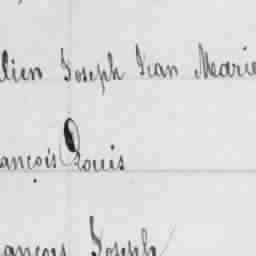 lien Joseph Jean Marie
ançois Louis
ançois Joseph